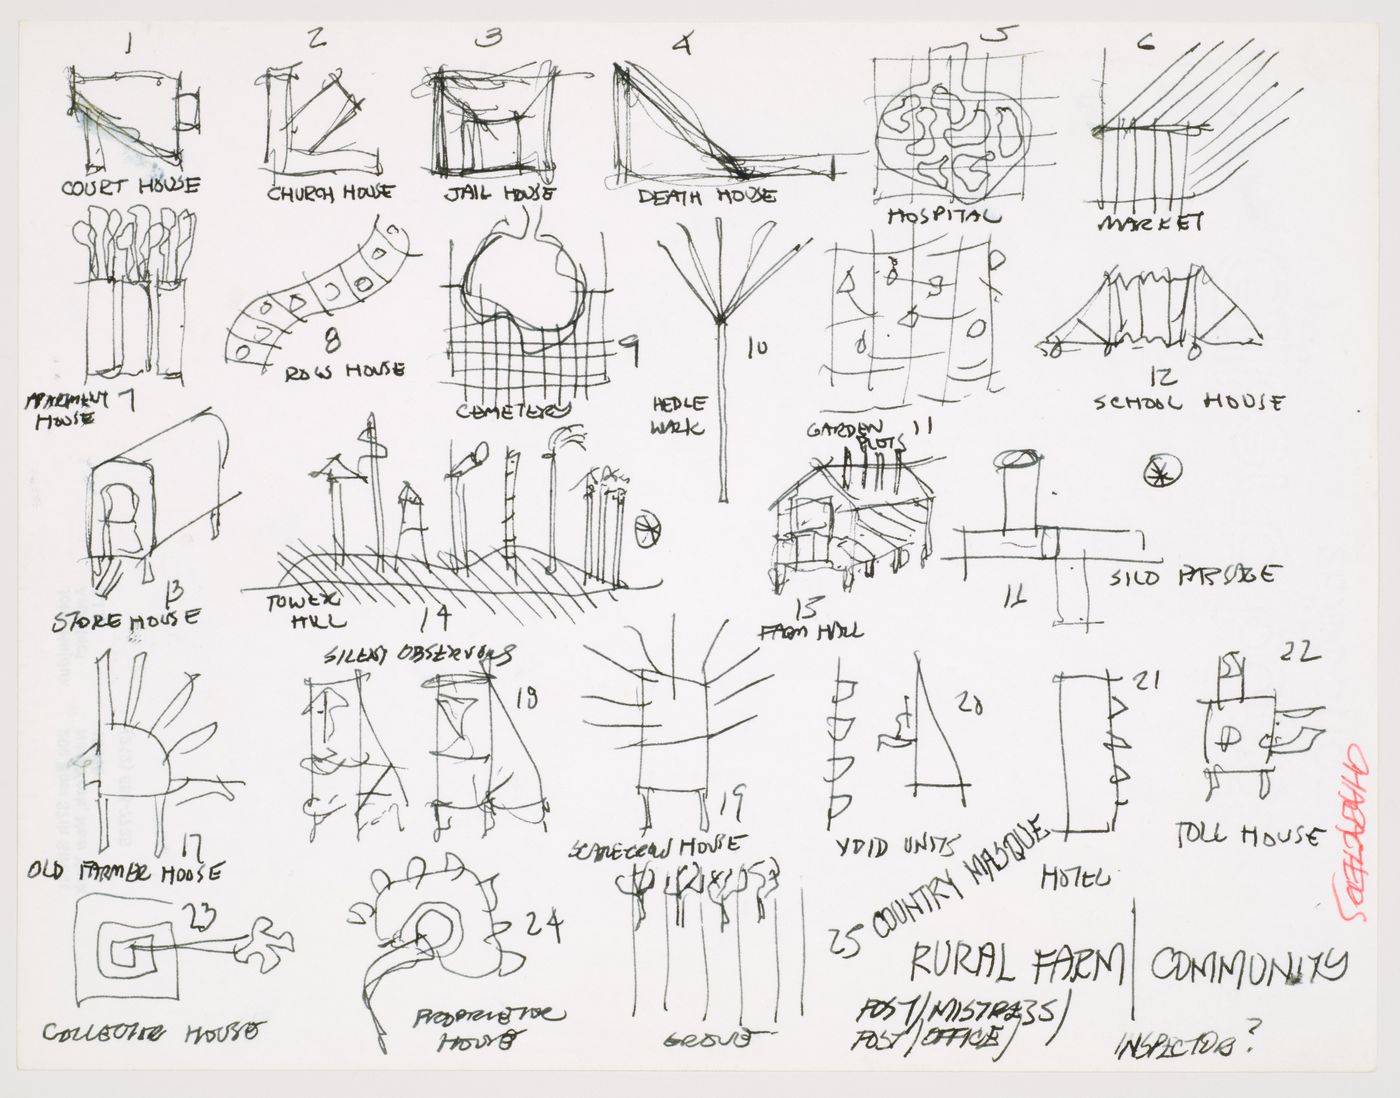 1 2 3 4 5 6
COURT HOUSE
CHURCH HOUSE
JAIL HOUSE
DEATH HOUSE
HOSPITAL
MARKET
APARTMENT 7
HOUSE
8
ROW HOUSE
9
CEMETERY
10
HEDLE
WALK
GARDEN 11
PLOTS
12
SCHOOL HOUSE
13
STORE HOUSE
TOWER
HILL
14
SILENT OBSERVORS
15
FARM HALL
16
SILO PASSAGE
17
OLD FARMER HOUSE
18
19
SCARECROW HOUSE
20
VOID UNITS
21
HOTEL
22
TOLL HOUSE
23
COLLECTOR HOUSE
24
PROPRIETOR
HOUSE
GROVE
25 COUNTRY MASQUE
RURAL FARM | COMMUNITY
POST/MISTRESS/
POST/OFFICE/
INSPECTOR?